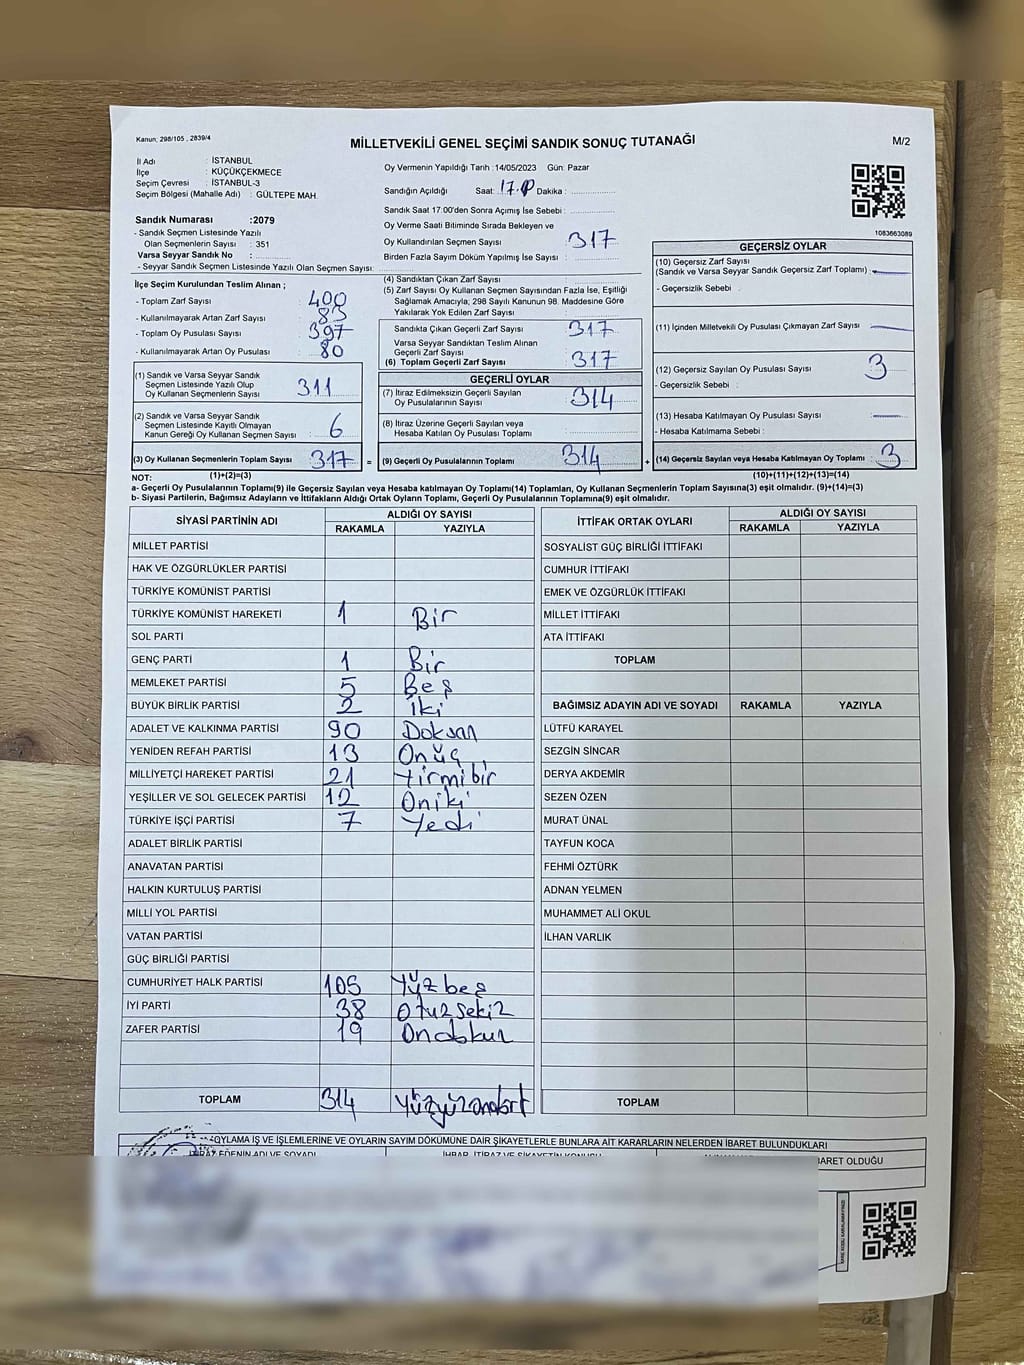 Kanun: 298/105 , 2839/4
MİLLETVEKİLİ GENEL SEÇİMİ SANDIK SONUÇ TUTANAĞI
M/2
İl Adı : İSTANBUL
İlçe : KÜÇÜKÇEKMECE
Seçim Çevresi : İSTANBUL-3
Seçim Bölgesi (Mahalle Adı) : GÜLTEPE MAH.
Sandık Numarası :2079
- Sandık Seçmen Listesinde Yazılı
Olan Seçmenlerin Sayısı : 351
Varsa Seyyar Sandık No :
- Seyyar Sandık Seçmen Listesinde Yazılı Olan Seçmen Sayısı:
Oy Vermenin Yapıldığı Tarih :14/05/2023 Gün: Pazar
Sandığın Açıldığı Saat: 17. Dakika :
Sandık Saat 17:00'den Sonra Açımış İse Sebebi :
Oy Verme Saati Bitiminde Sırada Bekleyen ve
Oy Kullandırılan Seçmen Sayısı : 317
Birden Fazla Sayım Döküm Yapılmış İse Sayısı :
1083663089
İlçe Seçim Kurulundan Teslim Alınan ;
- Toplam Zarf Sayısı : 400
- Kullanılmayarak Artan Zarf Sayısı : 83
- Toplam Oy Pusulası Sayısı : 397
- Kullanılmayarak Artan Oy Pusulası : 80
(1) Sandık ve Varsa Seyyar Sandık
Seçmen Listesinde Yazılı Olup
Oy Kullanan Seçmenlerin Sayısı : 311
(2) Sandık ve Varsa Seyyar Sandık
Seçmen Listesinde Kayıtlı Olmayan
Kanun Gereği Oy Kullanan Seçmen Sayısı : 6
(3) Oy Kullanan Seçmenlerin Toplam Sayısı : 317
(4) Sandıktan Çıkan Zarf Sayısı :
(5) Zarf Sayısı Oy Kullanan Seçmen Sayısından Fazla İse, Eşitliği
Sağlamak Amacıyla; 298 Sayılı Kanunun 98. Maddesine Göre
Yakılarak Yok Edilen Zarf Sayısı :
Sandıkta Çıkan Geçerli Zarf Sayısı : 317
Varsa Seyyar Sandıktan Teslim Alınan
Geçerli Zarf Sayısı :
(6) Toplam Geçerli Zarf Sayısı : 317
GEÇERLİ OYLAR
(7) İtiraz Edilmeksizin Geçerli Sayılan
Oy Pusulalarının Sayısı : 314
(8) İtiraz Üzerine Geçerli Sayılan veya
Hesaba Katılan Oy Pusulası Toplamı :
= (9) Geçerli Oy Pusulalarının Toplamı : 314
GEÇERSİZ OYLAR
(10) Geçersiz Zarf Sayısı
(Sandık ve Varsa Seyyar Sandık Geçersiz Zarf Toplamı) :
- Geçersizlik Sebebi :
(11) İçinden Milletvekili Oy Pusulası Çıkmayan Zarf Sayısı :
(12) Geçersiz Sayılan Oy Pusulası Sayısı : 3
- Geçersizlik Sebebi :
(13) Hesaba Katılmayan Oy Pusulası Sayısı :
- Hesaba Katılmama Sebebi :
+ (14) Geçersiz Sayılan veya Hesaba Katılmayan Oy Toplamı : 3
NOT: (1)+(2)=(3) (10)+(11)+(12)+(13)=(14)
a- Geçerli Oy Pusulalarının Toplamı(9) ile Geçersiz Sayılan veya Hesaba katılmayan Oy Toplamı(14) Toplamları, Oy Kullanan Seçmenlerin Toplam Sayısına(3) eşit olmalıdır. (9)+(14)=(3)
b- Siyasi Partilerin, Bağımsız Adayların ve İttifakların Aldığı Ortak Oyların Toplamı, Geçerli Oy Pusulalarının Toplamına(9) eşit olmalıdır.
SİYASİ PARTİNİN ADI ALDIĞI OY SAYISI
RAKAMLA YAZIYLA
MİLLET PARTİSİ
HAK VE ÖZGÜRLÜKLER PARTİSİ
TÜRKİYE KOMÜNİST PARTİSİ
TÜRKİYE KOMÜNİST HAREKETİ 1 Bir
SOL PARTİ
GENÇ PARTİ 1 Bir
MEMLEKET PARTİSİ 5 Beş
BÜYÜK BİRLİK PARTİSİ 2 İki
ADALET VE KALKINMA PARTİSİ 90 Doksan
YENİDEN REFAH PARTİSİ 13 Onüç
MİLLİYETÇİ HAREKET PARTİSİ 21 Yirmibir
YEŞİLLER VE SOL GELECEK PARTİSİ 12 Oniki
TÜRKİYE İŞÇİ PARTİSİ 7 Yedi
ADALET BİRLİK PARTİSİ
ANAVATAN PARTİSİ
HALKIN KURTULUŞ PARTİSİ
MİLLİ YOL PARTİSİ
VATAN PARTİSİ
GÜÇ BİRLİĞİ PARTİSİ
CUMHURİYET HALK PARTİSİ 105 Yüzbeş
İYİ PARTİ 38 Otuzsekiz
ZAFER PARTİSİ 19 Ondokuz
TOPLAM 314
İTTİFAK ORTAK OYLARI ALDIĞI OY SAYISI
RAKAMLA YAZIYLA
SOSYALİST GÜÇ BİRLİĞİ İTTİFAKI
CUMHUR İTTİFAKI
EMEK VE ÖZGÜRLÜK İTTİFAKI
MİLLET İTTİFAKI
ATA İTTİFAKI
TOPLAM
BAĞIMSIZ ADAYIN ADI VE SOYADI RAKAMLA YAZIYLA
LÜTFÜ KARAYEL
SEZGİN SİNCAR
DERYA AKDEMİR
SEZEN ÖZEN
MURAT ÜNAL
TAYFUN KOCA
FEHMİ ÖZTÜRK
ADNAN YELMEN
MUHAMMET ALİ OKUL
İLHAN VARLIK
TOPLAM
OYLAMA İŞ VE İŞLEMLERİNE VE OYLARIN SAYIM DÖKÜMÜNE DAİR ŞİKAYETLERLE BUNLARA AİT KARARLARIN NELERDEN İBARET BULUNDUKLARI
İHBAR, İTİRAZ VE ŞİKAYETİN KONUSU
BARET OLDUĞU